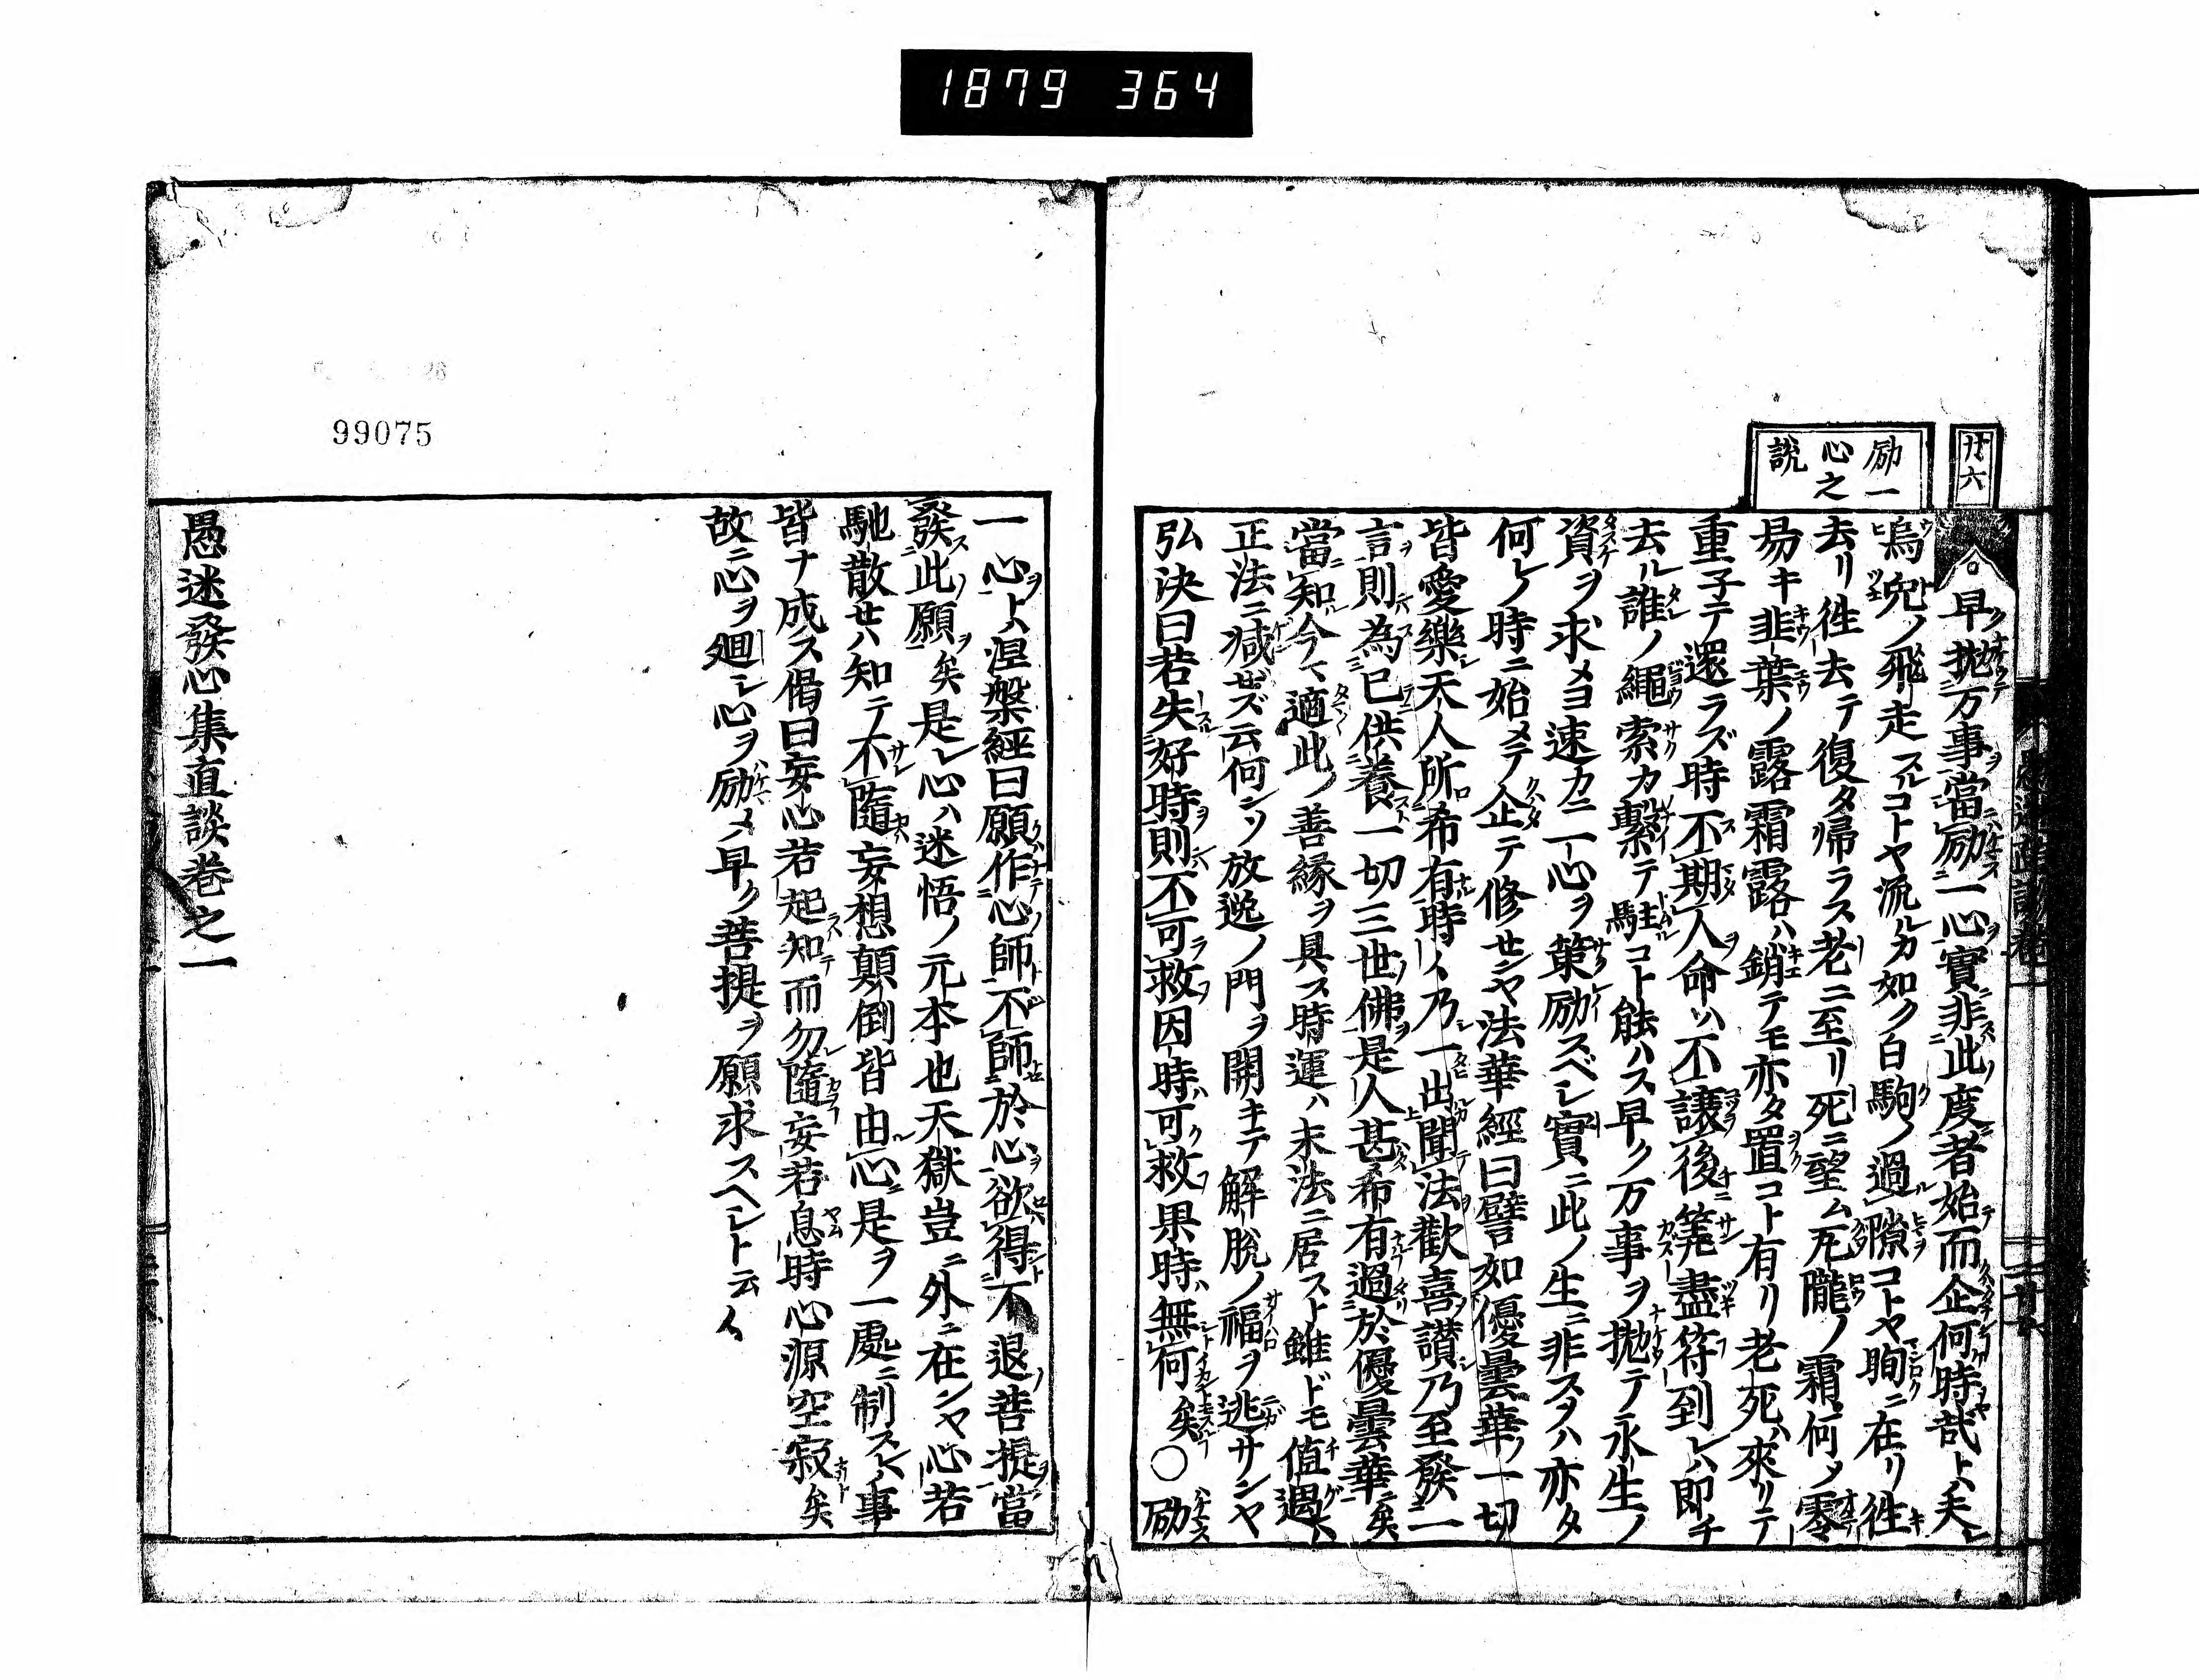 1879 364
廿六
励一
心之
説
早抛万事當励一心實非此度者始而企何時哉ト夫レ
烏兎ノ飛走スルコトヤ流ルカ如ク白駒ノ過隙コトヤ眴ニ在リ徃
去リ徃去テ復タ帰ラス老ニ至リ死ニ望ム瓦隴ノ霜何メ零
易キ韭葉ノ露霜露ハ銷テモ亦タ置コト有リ老死ハ來リテ
重子テ還ラズ時不期人命ハ不譲後筭盡符到レハ即チ
去ル誰ノ繩索カ繋テ駐コト能ハス早ク万事ヲ抛テ永生ノ
資ヲ求メヨ速カニ一心ヲ策励スベシ實ニ此ノ生ニ非スタハ亦タ
何レノ時ニ始メテ企テ修センヤ法華經曰譬如優曇華ノ一切
皆愛樂天人所希有時々乃一出聞法歡喜讃乃至發一
言則為已供養一切三世佛是人甚希有過於優曇華矣
當知今マ適此ノ善縁ヲ具ス時運ハ末法ニ居スト雖ドモ値遇ハ
正法ニ減ゼズ云何ンソ放逸ノ門ヲ開キテ解脱ノ福ヲ逃サンヤ
弘決曰若失好時則不可救因時可救果時無何矣〇励
一心ヲトハ涅槃經曰願作心師不師於心欲得不退菩提當
發此願矣是レ心ハ迷悟ノ元本也天獄豈ニ外ニ在ンヤ心若
馳散セハ知テ不隨妄想顛倒皆由心是ヲ一處ニ制スレハ事
皆ナ成ス偈曰妄心若起知而勿隨妄若息時心源空寂矣
故ニ心ヲ廻シ心ヲ励メ早ク菩提ヲ願求スヘシト云々
愚迷發心集直談巻之一
99075